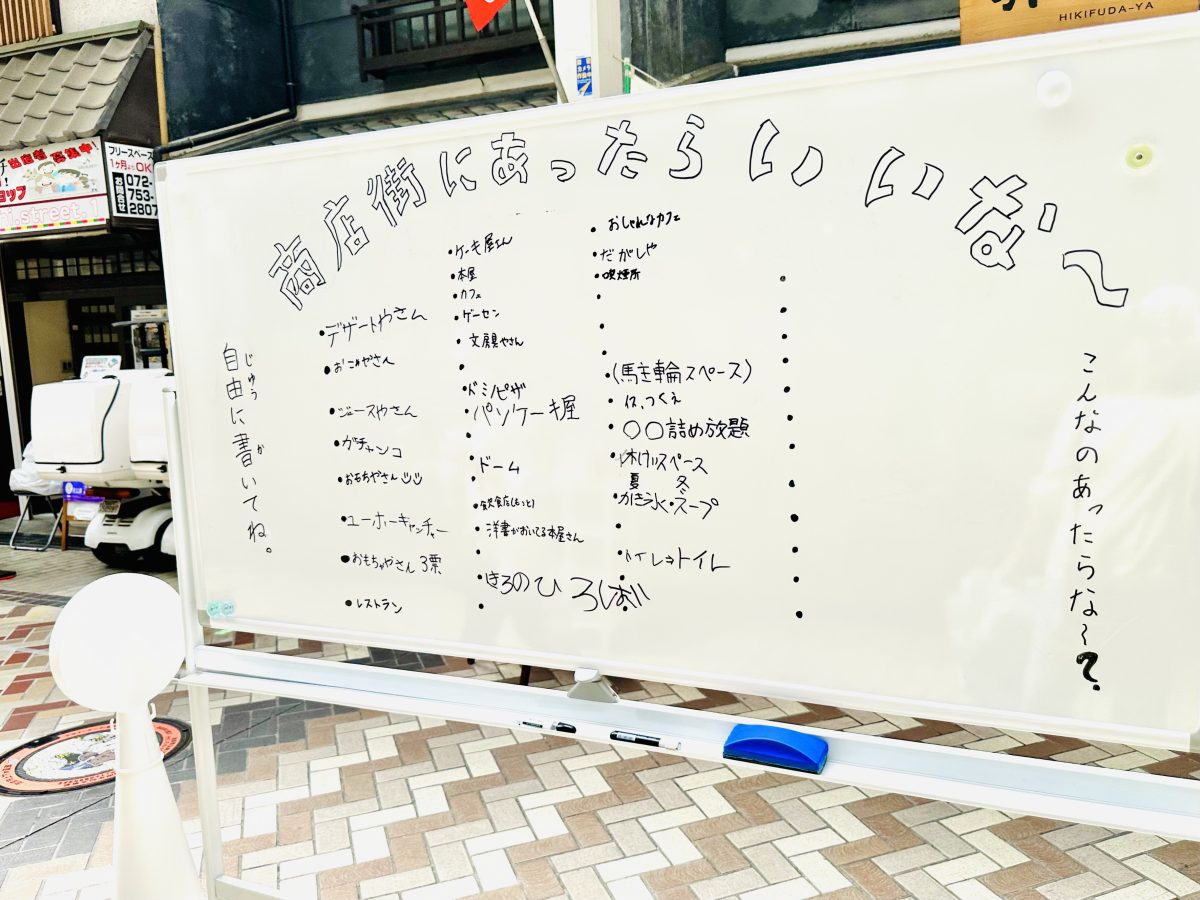 HIKIFUDA-YA
商店街にあったらいいな〜
こんなのあったらな〜?
自由に書いてね。
じゆう
か
・デザートやさん
・ジュースやさん
・ガチャンコ
・おもちやさん
・ユーホーキャッチャー
・おもちゃやさん 3票
・レストラン
・ケーキ屋さん
・本屋
・カフェ
・ゲーセン
・文房具やさん
・ドミノピザ
・パンケーキ屋
・ドーム
・飲食店(もっと)
・洋書がおいてる本屋さん
・おしゃれなカフェ
・だがしや
・喫煙所
・(駐輪スペース)
・イス、つくえ
・〇〇詰め放題
・休けいスペース
夏 冬
・かき氷・スープ
トイレ
フリースペース
1ヶ月よりOK
お問合せ
072-
753-
2807
i.street.1